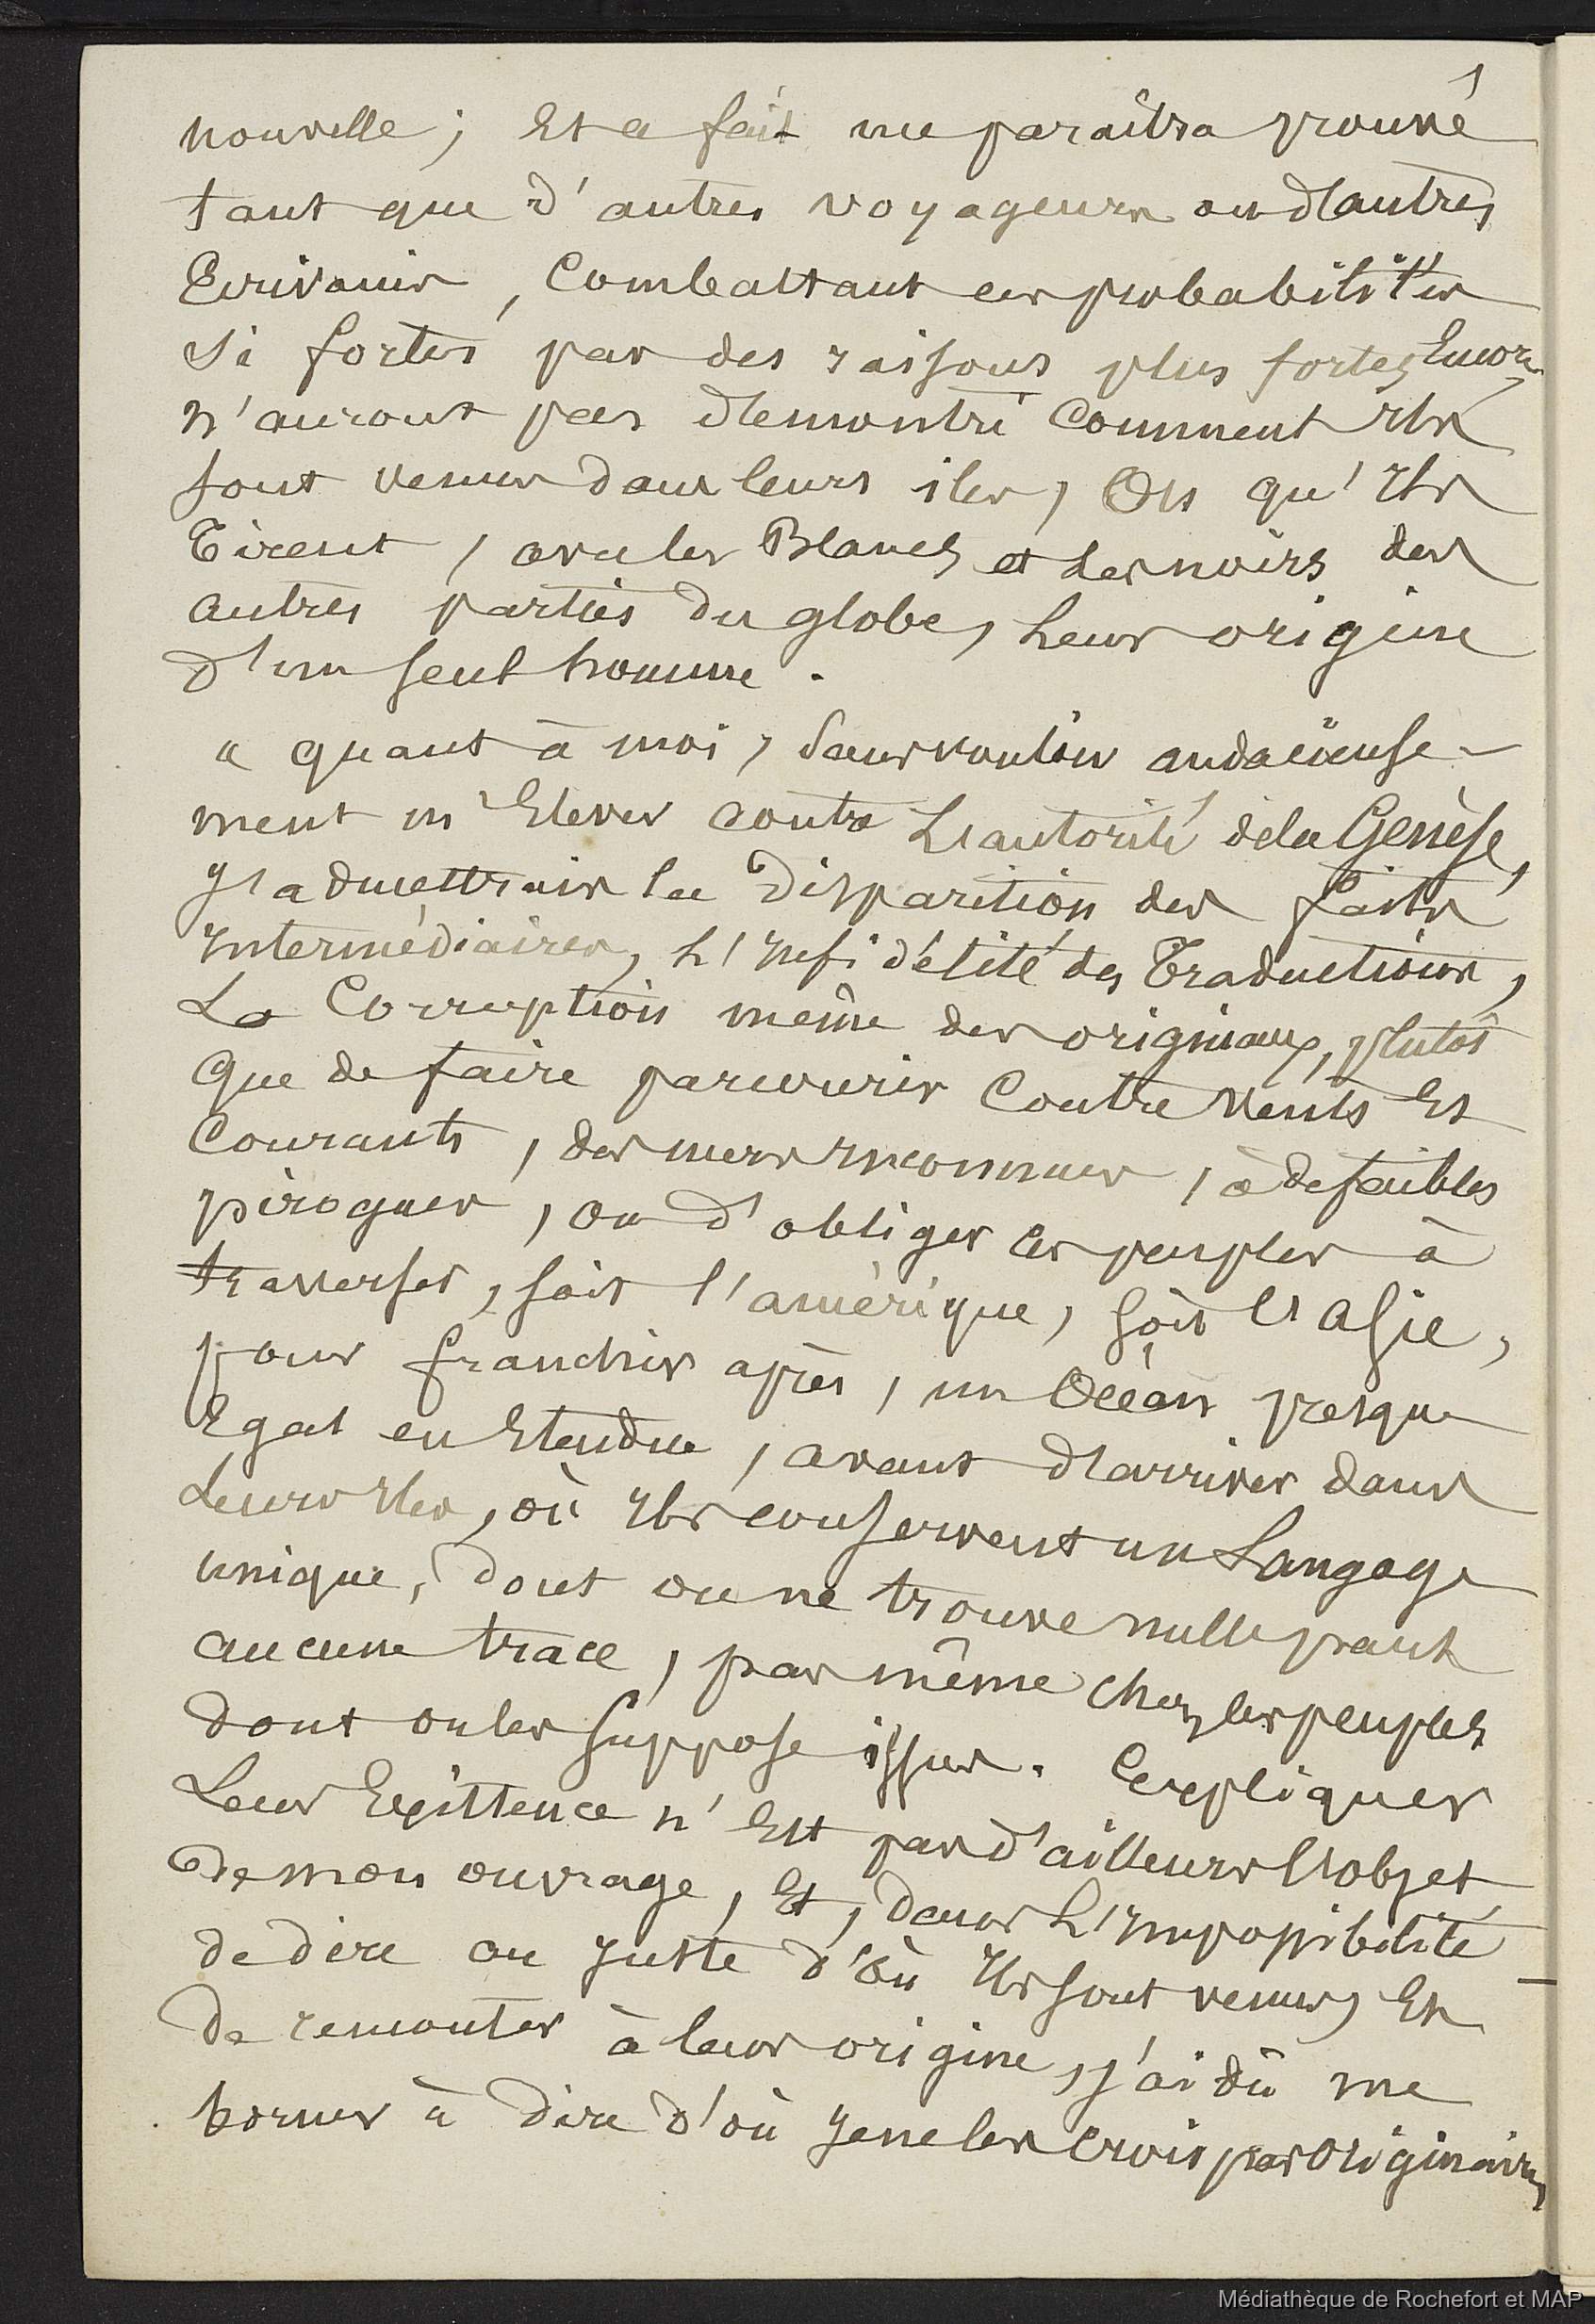 nouvelle ; Et ce fait me paraîtra prouvé
tant que d'autres voyageurs ou d'autres
Ecrivains, Combattant ces probabilités
si fortes par des raisons plus fortes Encore
n'auront pas démontré Comment Ils
sont venus dans leurs iles, Ou qu'Ils
Tirent, avec les Blancs et Les noirs des
autres parties du globe, Leur origine
d'un seul homme.
« quant à moi, Sans vouloir audacieuse-
ment m'Elever Contre L'autorité de la Genèse,
J'admettrais la Disparition des faits
Intermédiaires, L'Infidélité des Traductions,
La Corruption même des originaux, plutôt
Que de faire parcourir Contre Vents Et
Courants, des mers Inconnues, à de faibles
pirogues, ou d'obliger ces peuples à
traverser, soit l'amérique, soit l'asie,
pour franchir après, un Océan presque
Egal en Etendue, avant d'arriver dans
Leurs Iles, où Ils conservent un Langage
unique, dont on ne trouve nulle part
aucune trace, pas même chez les peuples
dont on les suppose issus. Expliquer
Leur Existence n'Est pas d'ailleurs l'objet
De mon ouvrage, Et, dans L'Impossibilité
de dire au Juste d'où Ils sont venus, Et
De remonter à leur origine, j'ai dû me
borner à dire d'où Je ne les crois pas originaires
Médiathèque de Rochefort et MAP